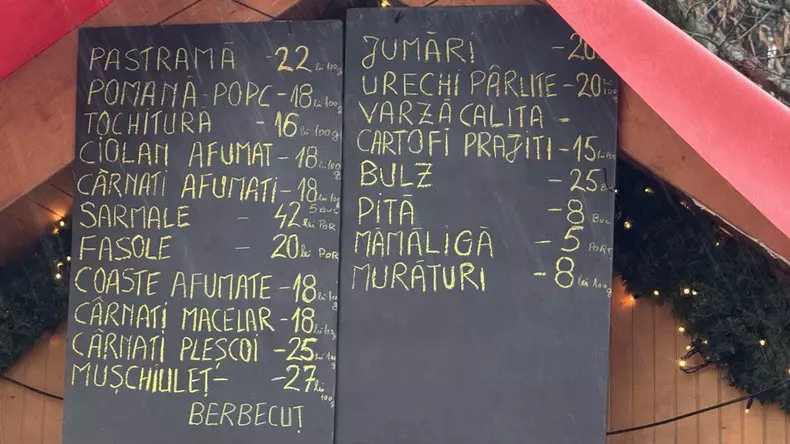 PASTRAMĂ - 22 lei 100g
POMANĂ POPC - 18 lei 100g
TOCHITURĂ - 16 lei 100g
CIOLAN AFUMAT - 18 lei 100g
CÂRNATI AFUMATI - 18 lei 100g
SARMALE - 42 5 BUC lei POR
FASOLE - 20 lei POR
COASTE AFUMATE - 18 lei 100g
CÂRNAȚI MACELAR - 18 lei 100g
CÂRNAȚI PLEȘCOI - 25 lei 100g
MUȘCHIULEȚ - 27 lei 100g
BERBECUȚ
JUMĂRI - 20
URECHI PÂRLITE - 20 lei 100g
VARZĂ CALITA -
CARTOFI PRAJITI - 15 lei POR
BULZ - 25 BUC
PITĂ - 8 BUC
MĂMĂLIGĂ - 5 PORT
MURĂTURI - 8 lei 100g